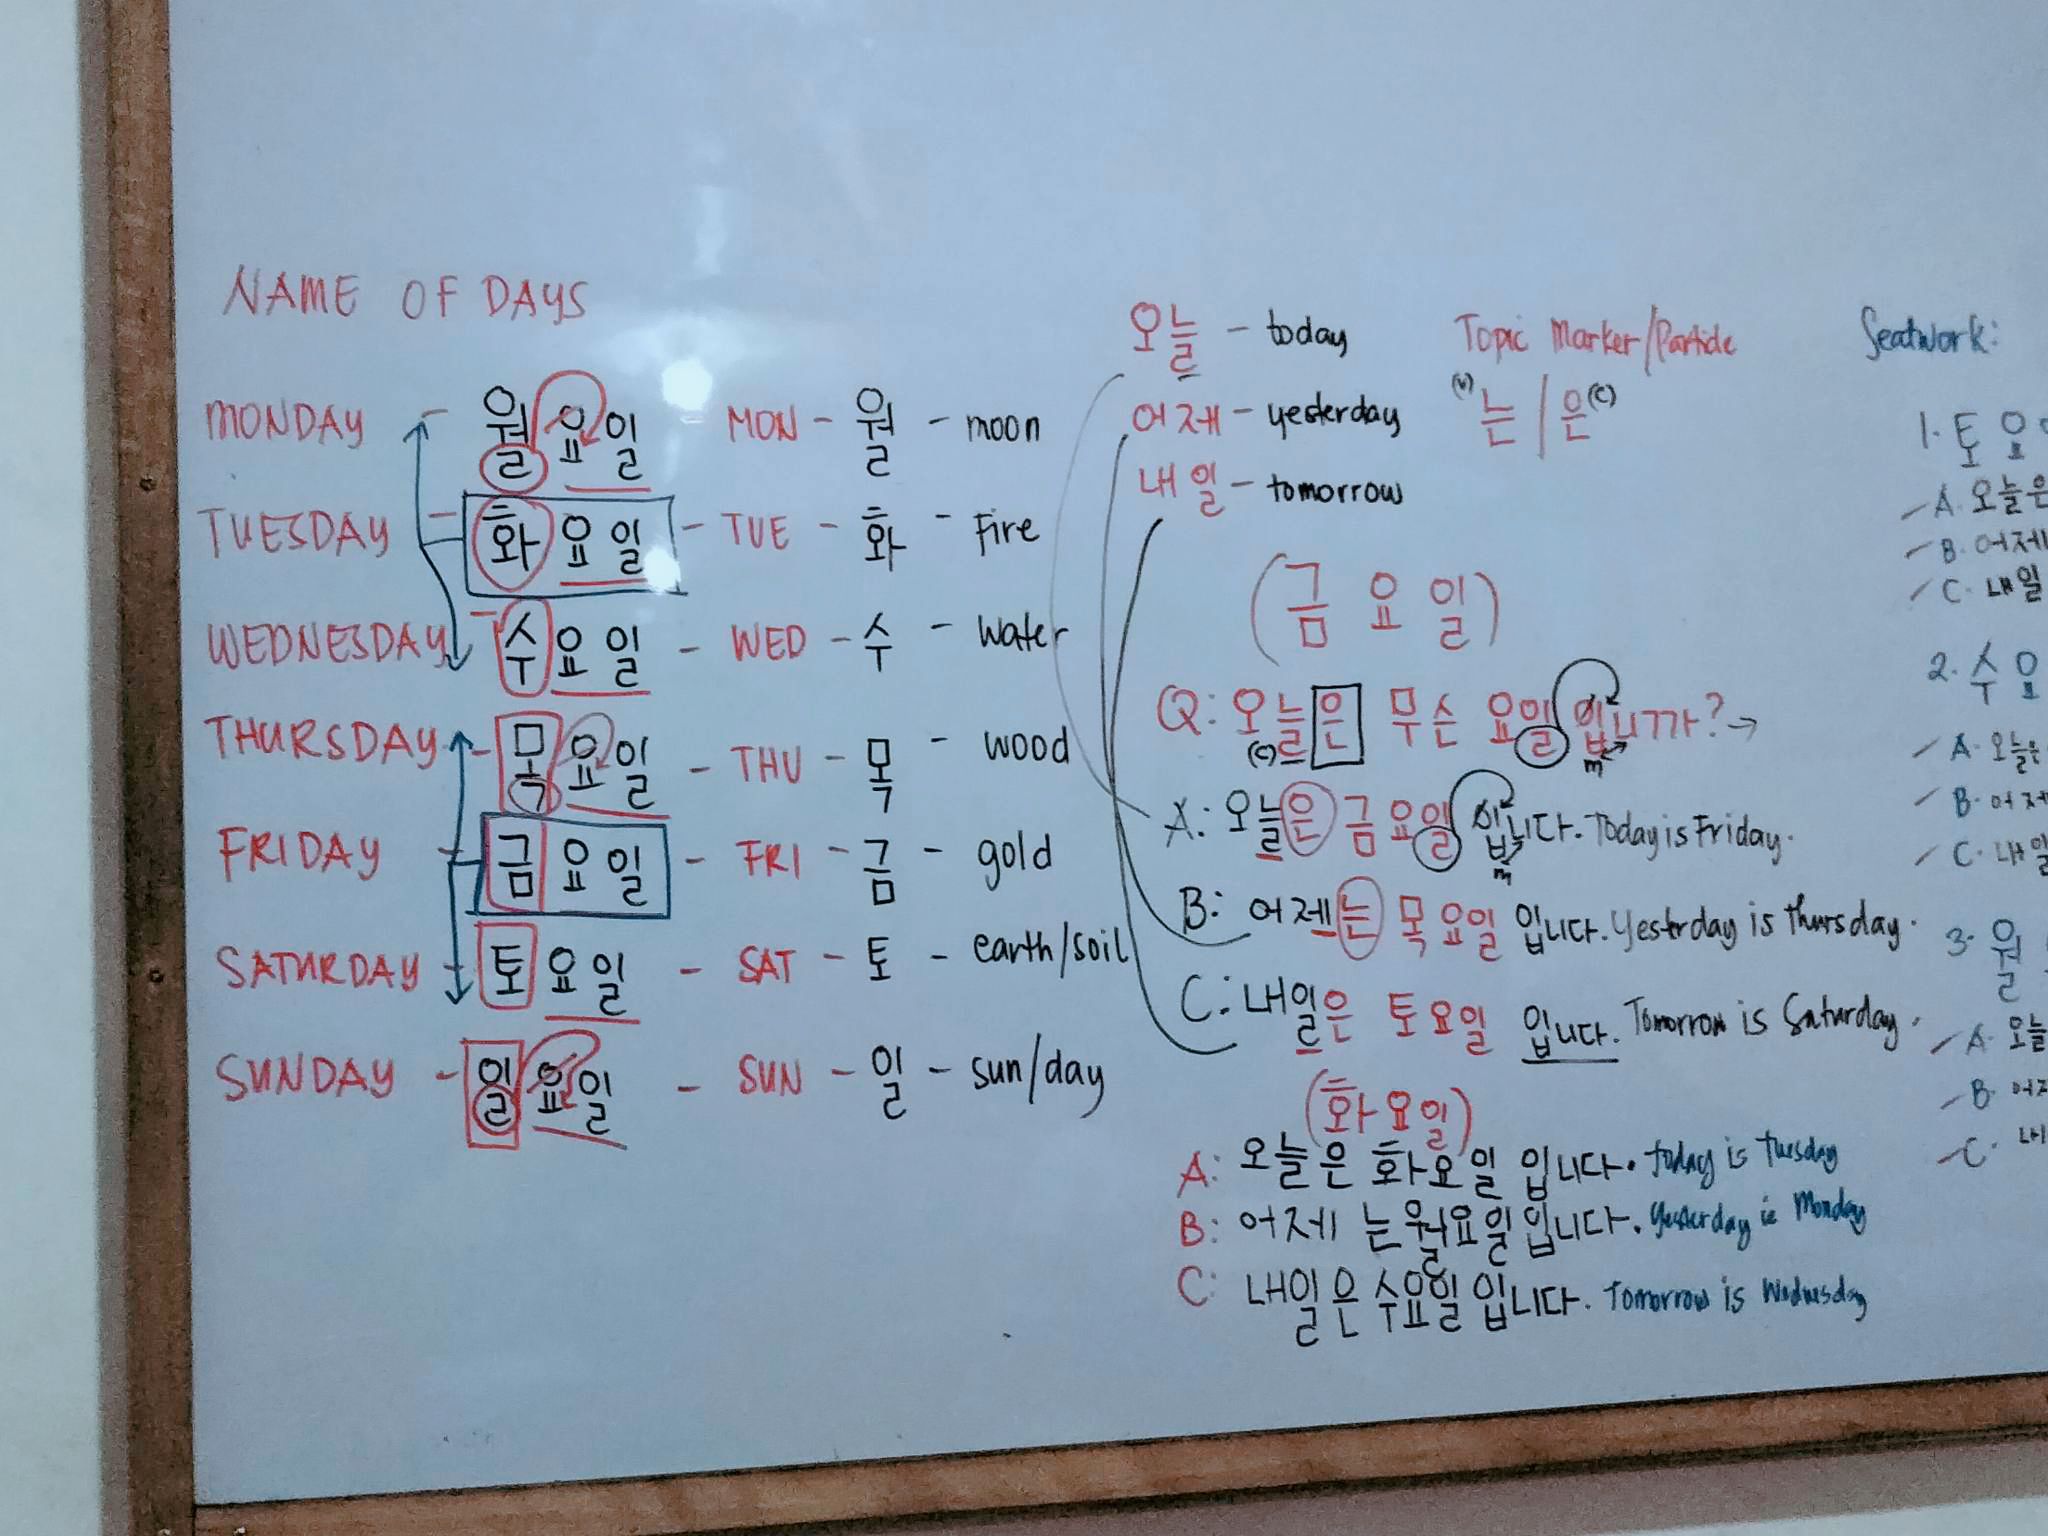 NAME OF DAYS
MONDAY - 월요일 MON - 월 - moon
TUESDAY - 화요일 - TUE - 화 - Fire
WEDNESDAY - 수요일 - WED - 수 - water
THURSDAY - 목요일 - THU - 목 - wood
FRIDAY - 금요일 - FRI - 금 - gold
SATURDAY - 토요일 - SAT - 토 - earth/soil
SUNDAY - 일요일 - SUN - 일 - sun/day
오늘 - today
어제 - yesterday
내일 - tomorrow
Topic Marker/Particle
(v) 는 / 은 (c)
(금요일)
Q: 오늘은 무슨 요일 입니까?
(c) m
A: 오늘은 금요일 입니다. Today is Friday.
m
B: 어제는 목요일 입니다. Yestrday is thursday.
C: 내일은 토요일 입니다. Tomorrow is Saturday.
(화요일)
A: 오늘은 화요일 입니다. today is Tuesday
B: 어제 는 월요일 입니다. Yesterday is Monday
C: 내일은 수요일 입니다. Tomorrow is Wednesday
Seatwork:
1. 토 요
A. 오늘은
B. 어제
C. 내일
2. 수 요
A. 오늘은
B. 어제
C. 내일
3. 월
A. 오늘
B. 어제
C. 내